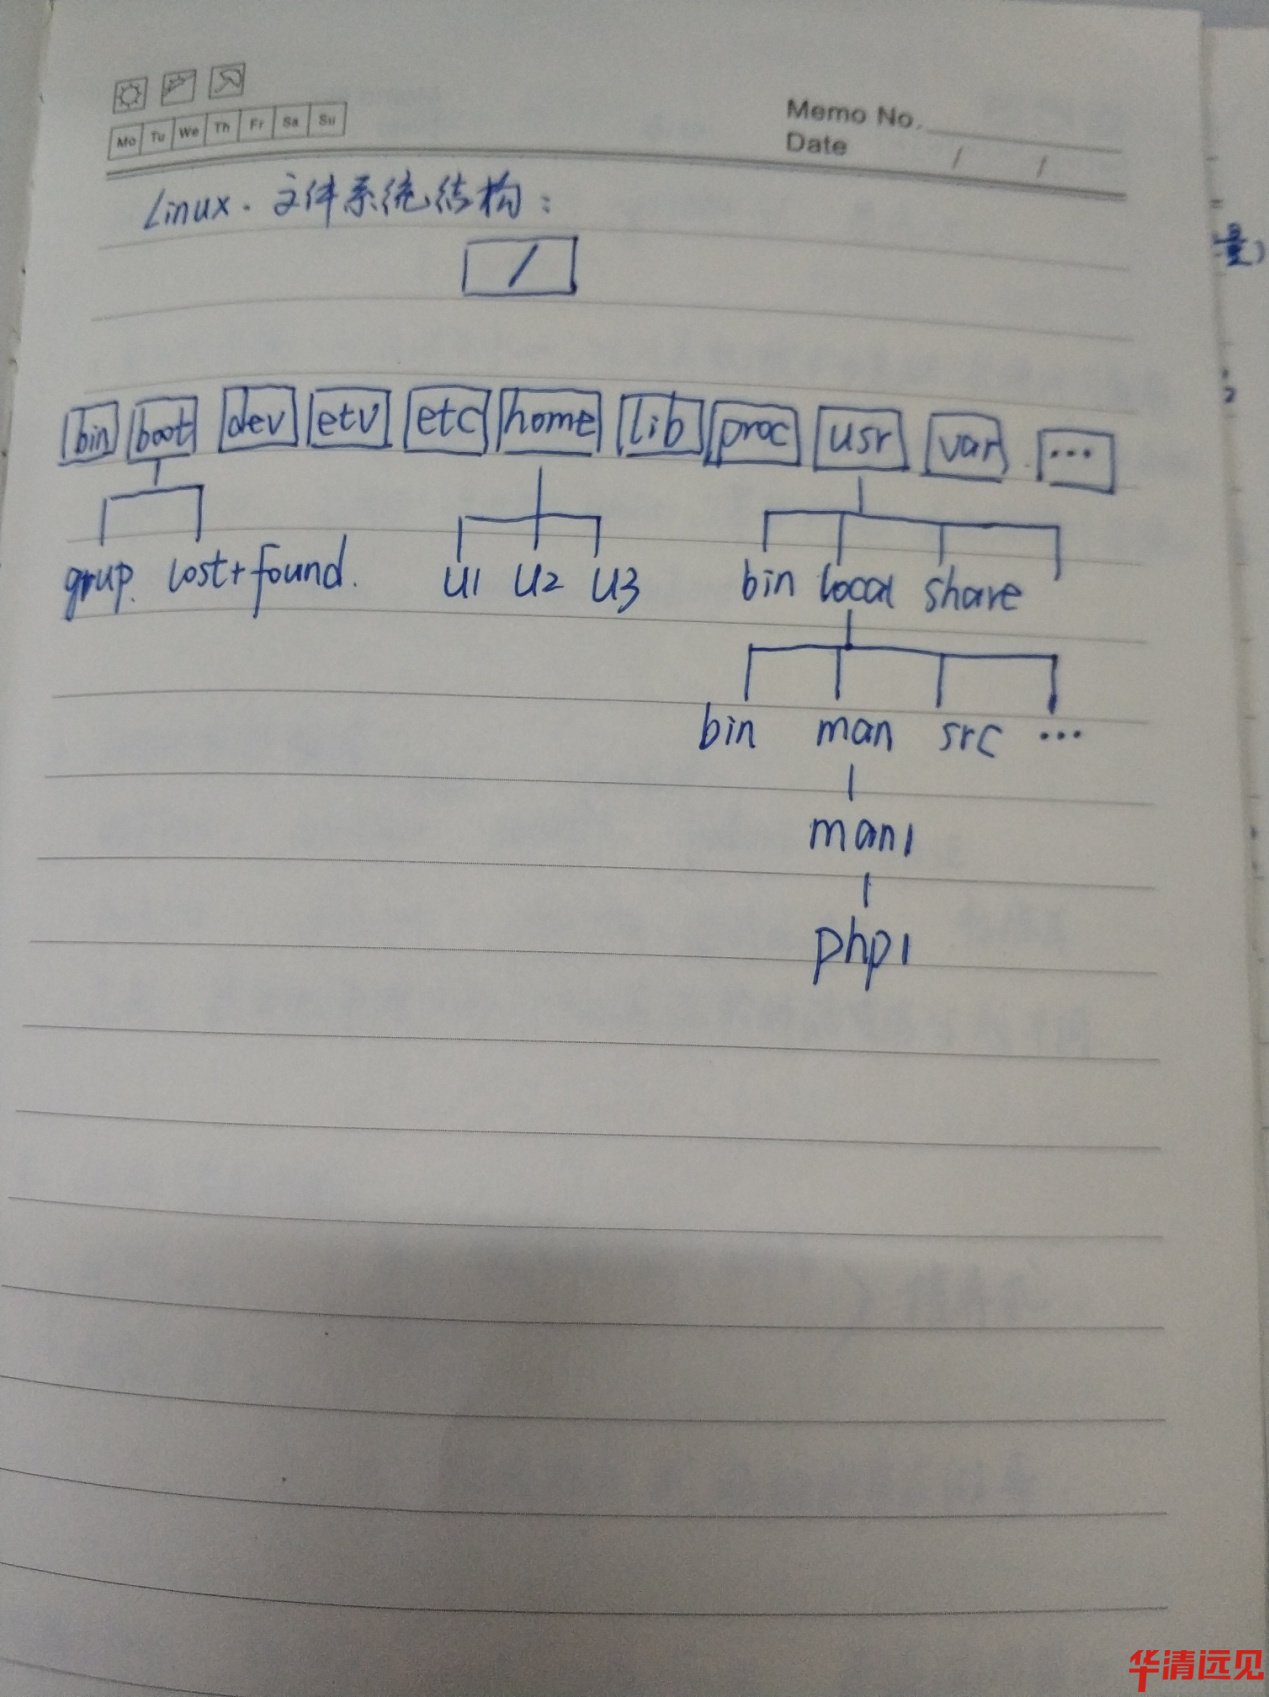 Mo Tu We Th Fr Sa Su
Memo No.
Date / /
Linux. 文件系统结构:
/
bin boot dev etv etc home lib proc usr var ...
grup. lost+found. u1 u2 u3 bin local share
bin man src ...
man1
php1
华清远见